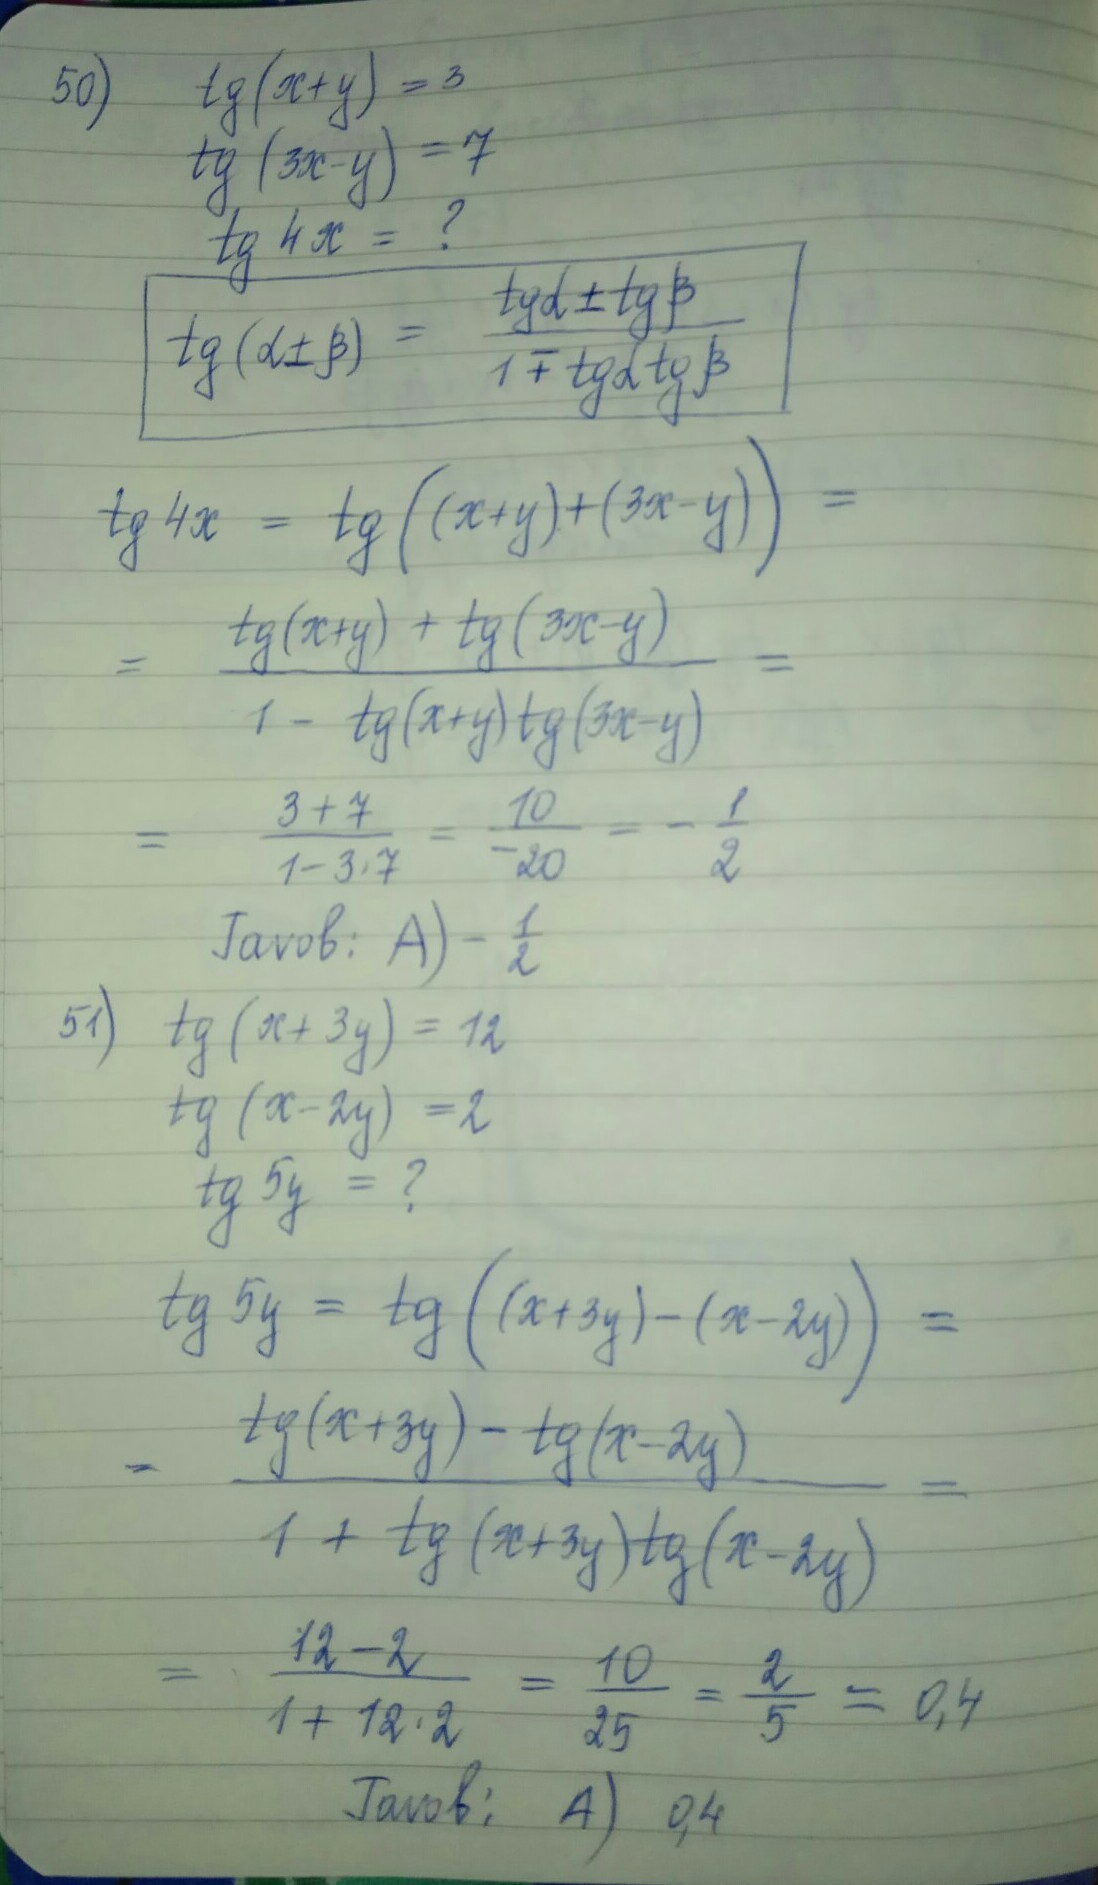 50) tg(x+y) = 3
tg(3x-y) = 7
tg 4x = ?
tg(α±β) = (tgα ± tgβ)/(1 ∓ tgα tgβ)
tg 4x = tg((x+y)+(3x-y)) =
= (tg(x+y) + tg(3x-y))/(1 - tg(x+y) tg(3x-y)) =
= (3+7)/(1-3·7) = 10/-20 = -1/2
Javob: A) -1/2
51) tg(x+3y) = 12
tg(x-2y) = 2
tg 5y = ?
tg 5y = tg((x+3y)-(x-2y)) =
= (tg(x+3y) - tg(x-2y))/(1 + tg(x+3y) tg(x-2y)) =
= (12-2)/(1+12·2) = 10/25 = 2/5 = 0,4
Javob: A) 0,4